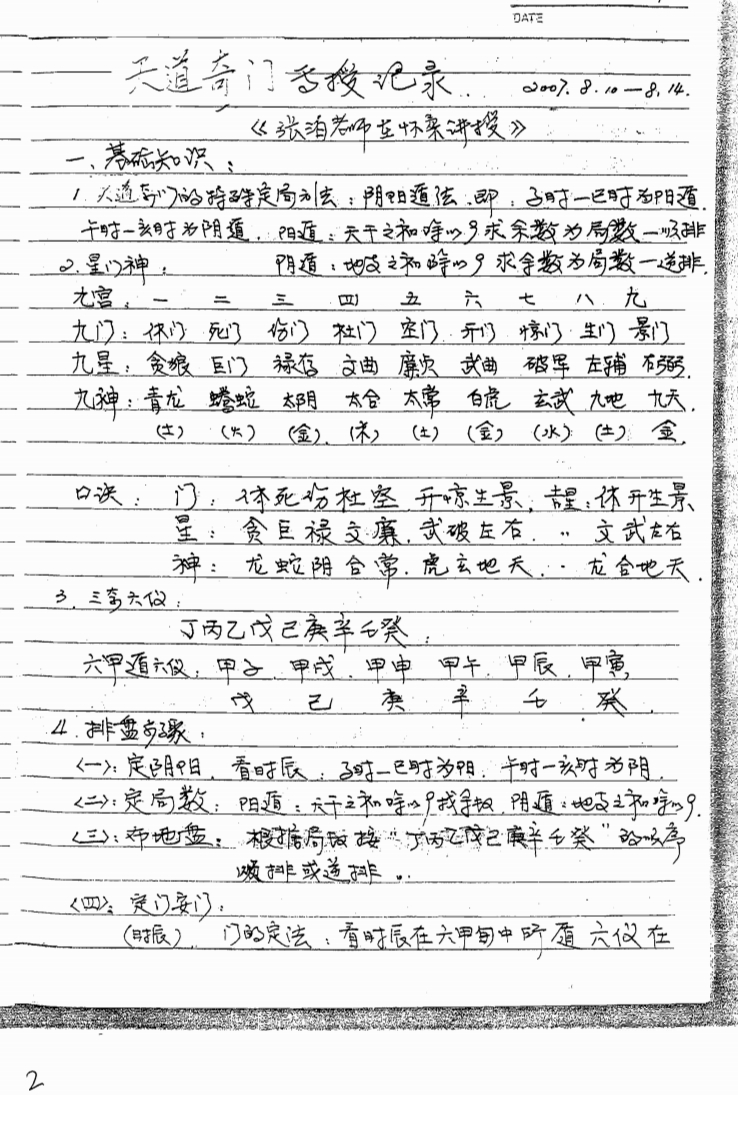 DATE
天道奇门面授记录. 2007.8.10—8.14.
《张泊老师在怀柔讲授》
一、基础知识:
1. 大道奇门的特殊定局方法:阴阳遁法.即:子时—巳时为阳遁.
午时—亥时为阴遁. 阳遁:天干之和除以9求余数为局数—顺排
2. 星门神: 阴遁:地支之和除以9求余数为局数—逆排.
九宫: 一 二 三 四 五 六 七 八 九
九门: 休门 死门 伤门 杜门 空门 开门 惊门 生门 景门
九星: 贪狼 巨门 禄存 文曲 廉贞 武曲 破军 左辅 右弼.
九神: 青龙 螣蛇 太阴 六合 太常 白虎 玄武 九地 九天.
(土) (火) (金). (木) (土) (金) (水) (土) 金.
口诀: 门: 休死伤杜空 开惊生景, 吉星:休开生景
星: 贪巨禄文廉.武破左右. 〃 文武左右
神: 龙蛇阴合常.虎玄地天. 〃 龙合地天.
3. 三奇六仪:
丁丙乙戊己庚辛壬癸:
六甲遁六仪: 甲子 甲戌 甲申 甲午 甲辰. 甲寅,
戊 己 庚 辛 壬 癸.
4. 排盘步骤:
〈一〉:定阴阳. 看时辰:子时—巳时为阳. 午时—亥时为阴.
〈二〉:定局数: 阳遁:天干之和除以9找余数.阴遁:地支之和除以9.
〈三〉:布地盘: 根据局数按“丁丙乙戊己庚辛壬癸”的顺序
顺排或逆排..
〈四〉: 定门安门:
(时辰). 门的定法:看时辰在六甲旬中所遁六仪在
2